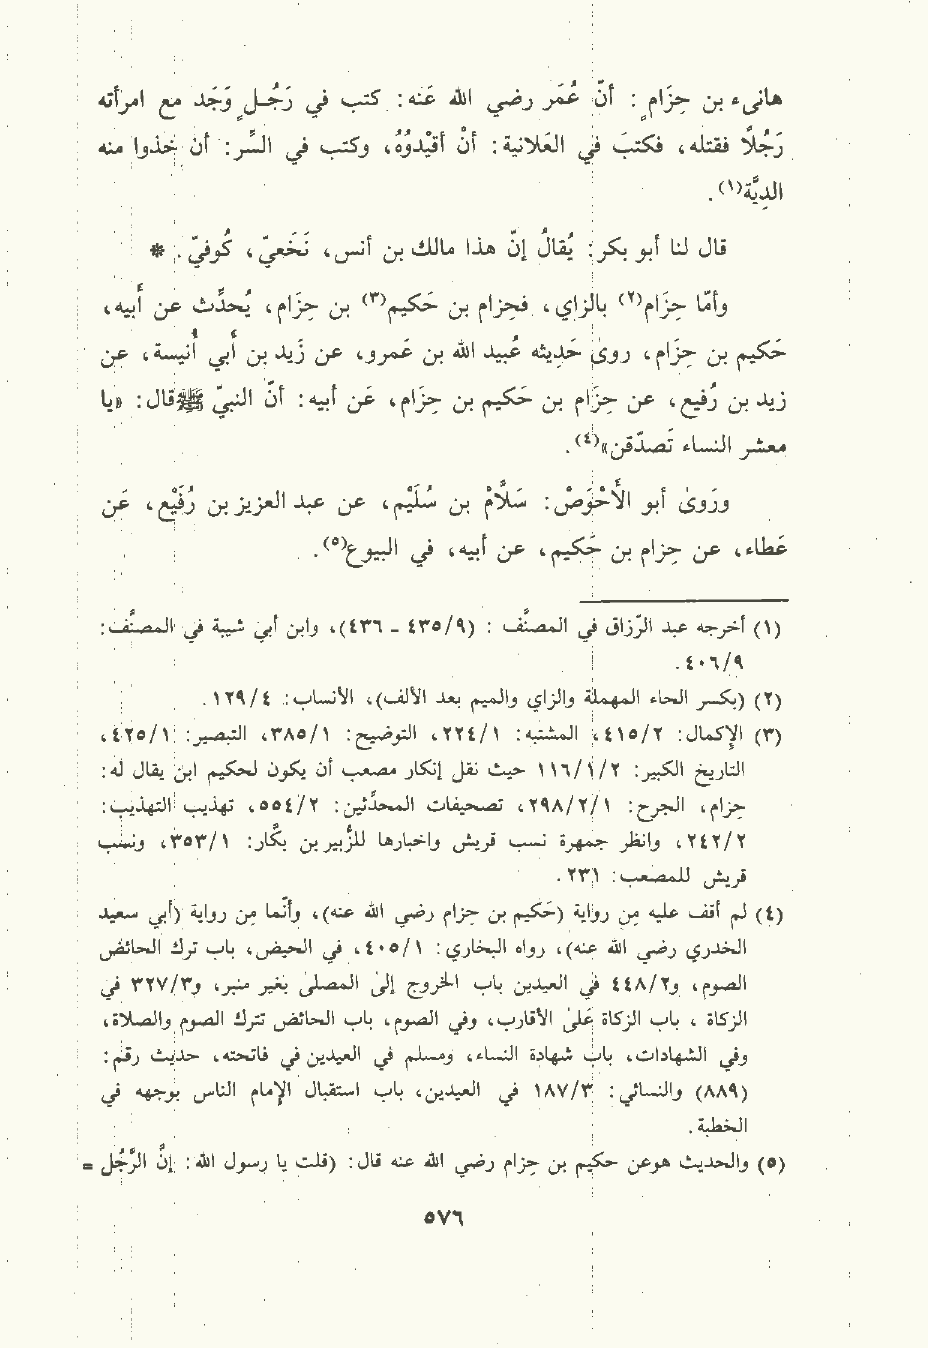 هانىء بن حِزَامٍ : أنّ عُمَر رضي الله عَنه: كتب في رَجُـلٍ وَجَد مع امرأته
رَجُلًا فقتله، فكتبَ في العَلانية: أنْ أقيْدوُهُ، وكتب في السِّر: أن خذوا منه
الدِيَّة(١).
قال لنا أبو بكر: يُقالُ إنّ هذا مالك بن أنس، نَخَعيّ، كُوفيّ. *
وأمّا حِزَام(٢) بالزاي، فحِزام بن حَكيم(٣) بن حِزَام، يُحدِّث عن أَبيه،
حَكيم بن حِزَام، روىٰ حَدِيثه عُبيد الله بن عَمرو، عن زَيد بن أَبي أُنيسة، عن
زيد بن رُفيع، عن حِزَام بن حَكيم بن حِزَام، عَن أبيه: أنّ النبيّ ﷺ قال: «يا
معشر النساء تَصدّقن»(٤).
ورَوىٰ أبو الأَحْوَصْ: سَلَّامْ بن سُلَيْم، عن عبد العزيز بن رُفَيْع، عَن
عَطاء، عن حِزام بن حَكيم، عن أبيه، في البيوع(٥).
(١) أخرجه عبد الرّزاق في المصنَّف : (٩/ ٤٣٥ - ٤٣٦)، وابن أبي شيبة في المصنَّف:
٩/ ٤٠٦.
(٢) (بكسر الحاء المهملة والزاي والميم بعد الألف)، الأنساب: ٤/ ١٢٩.
(٣) الإكمال: ٢/ ٤١٥، المشتبه: ١/ ٢٢٤، التوضيح: ١/ ٣٨٥، التبصير: ١/ ٤٢٥،
التاريخ الكبير: ٢/ ١/ ١١٦ حيث نقل إنكار مصعب أن يكون لحكيم ابن يقال له:
حِزام، الجرح: ١/ ٢/ ٢٩٨، تصحيفات المحدَّثين: ٢/ ٥٥٤، تهذيب التهذيب:
٢/ ٢٤٢، وانظر جمهرة نسب قريش واخبارها للزُّبير بن بكَّار: ١/ ٣٥٣، ونسب
قريش للمصعب: ٢٣١.
(٤) لم أقف عليه مِن رواية (حَكيم بن حِزام رضي الله عنه)، وأنّما مِن رواية (أبي سعيد
الخدري رضي الله عنه)، رواه البخاري: ١/ ٤٠٥، في الحيض، باب ترك الحائض
الصوم، و٢/ ٤٤٨ في العيدين باب الخروج إلىٰ المصلىٰ بغير منبر، و٣/ ٣٢٧ في
الزكاة ، باب الزكاة عَلىٰ الأقارب، وفي الصوم، باب الحائض تترك الصوم والصلاة،
وفي الشهادات، باب شهادة النساء، ومسلم في العيدين في فاتحته، حديث رقم:
(٨٨٩) والنسائي: ٣/ ١٨٧ في العيدين، باب استقبال الإمام الناس بوجهه في
الخطبة.
(٥) والحديث هوعن حكيم بن حِزام رضي الله عنه قال: (قلت يا رسول الله: إنَّ الرَّجُل =
٥٧٦